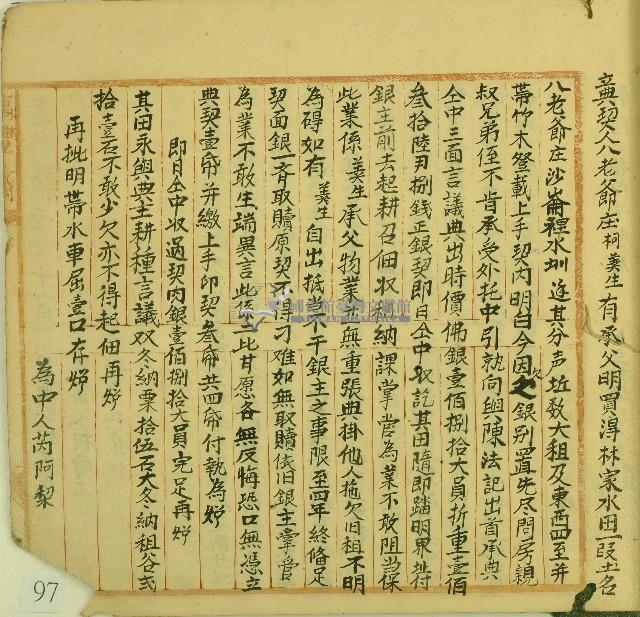 典契人八老爺庄柯羙生有承父明買得林家水田一段土名
八老爺庄沙崙裡水圳迯其分声坵数大租及東西四至并
帶竹木登載上手契內明白今因欠銀别置先尽問房親
叔兄弟侄不肯承受外托中引就向與陳法記出首承典
仝中三面言議典出時價佛銀壹佰捌拾大員折重壹佰
叁拾陸刄捌錢正銀契即日仝中収訖其田隨即踏明界址付
銀主前去起耕召佃収納課掌管為業不敢阻当保
此業係羙生承父物業無重張典掛他人拖欠旧租不明
為碍如有羙生自出抵当不干銀主之事限至四年終偹足
契面銀一齐取贖原契不得刁难如無取贖依旧銀主掌管
為業不敢生端異言此係比甘愿各無反悔恐口無憑立
典契壹帋并繳上手印契叁帋共四帋付執為炤
即日仝中収過契內銀壹佰捌拾大員完足再炤
其田永與典主耕種言議双冬納粟拾伍石大冬納租谷弍
拾壹石不敢少欠亦不得起佃再炤
再批明帶水車屈壹口存炤
為中人芮阿梨
國立台灣文獻館
97